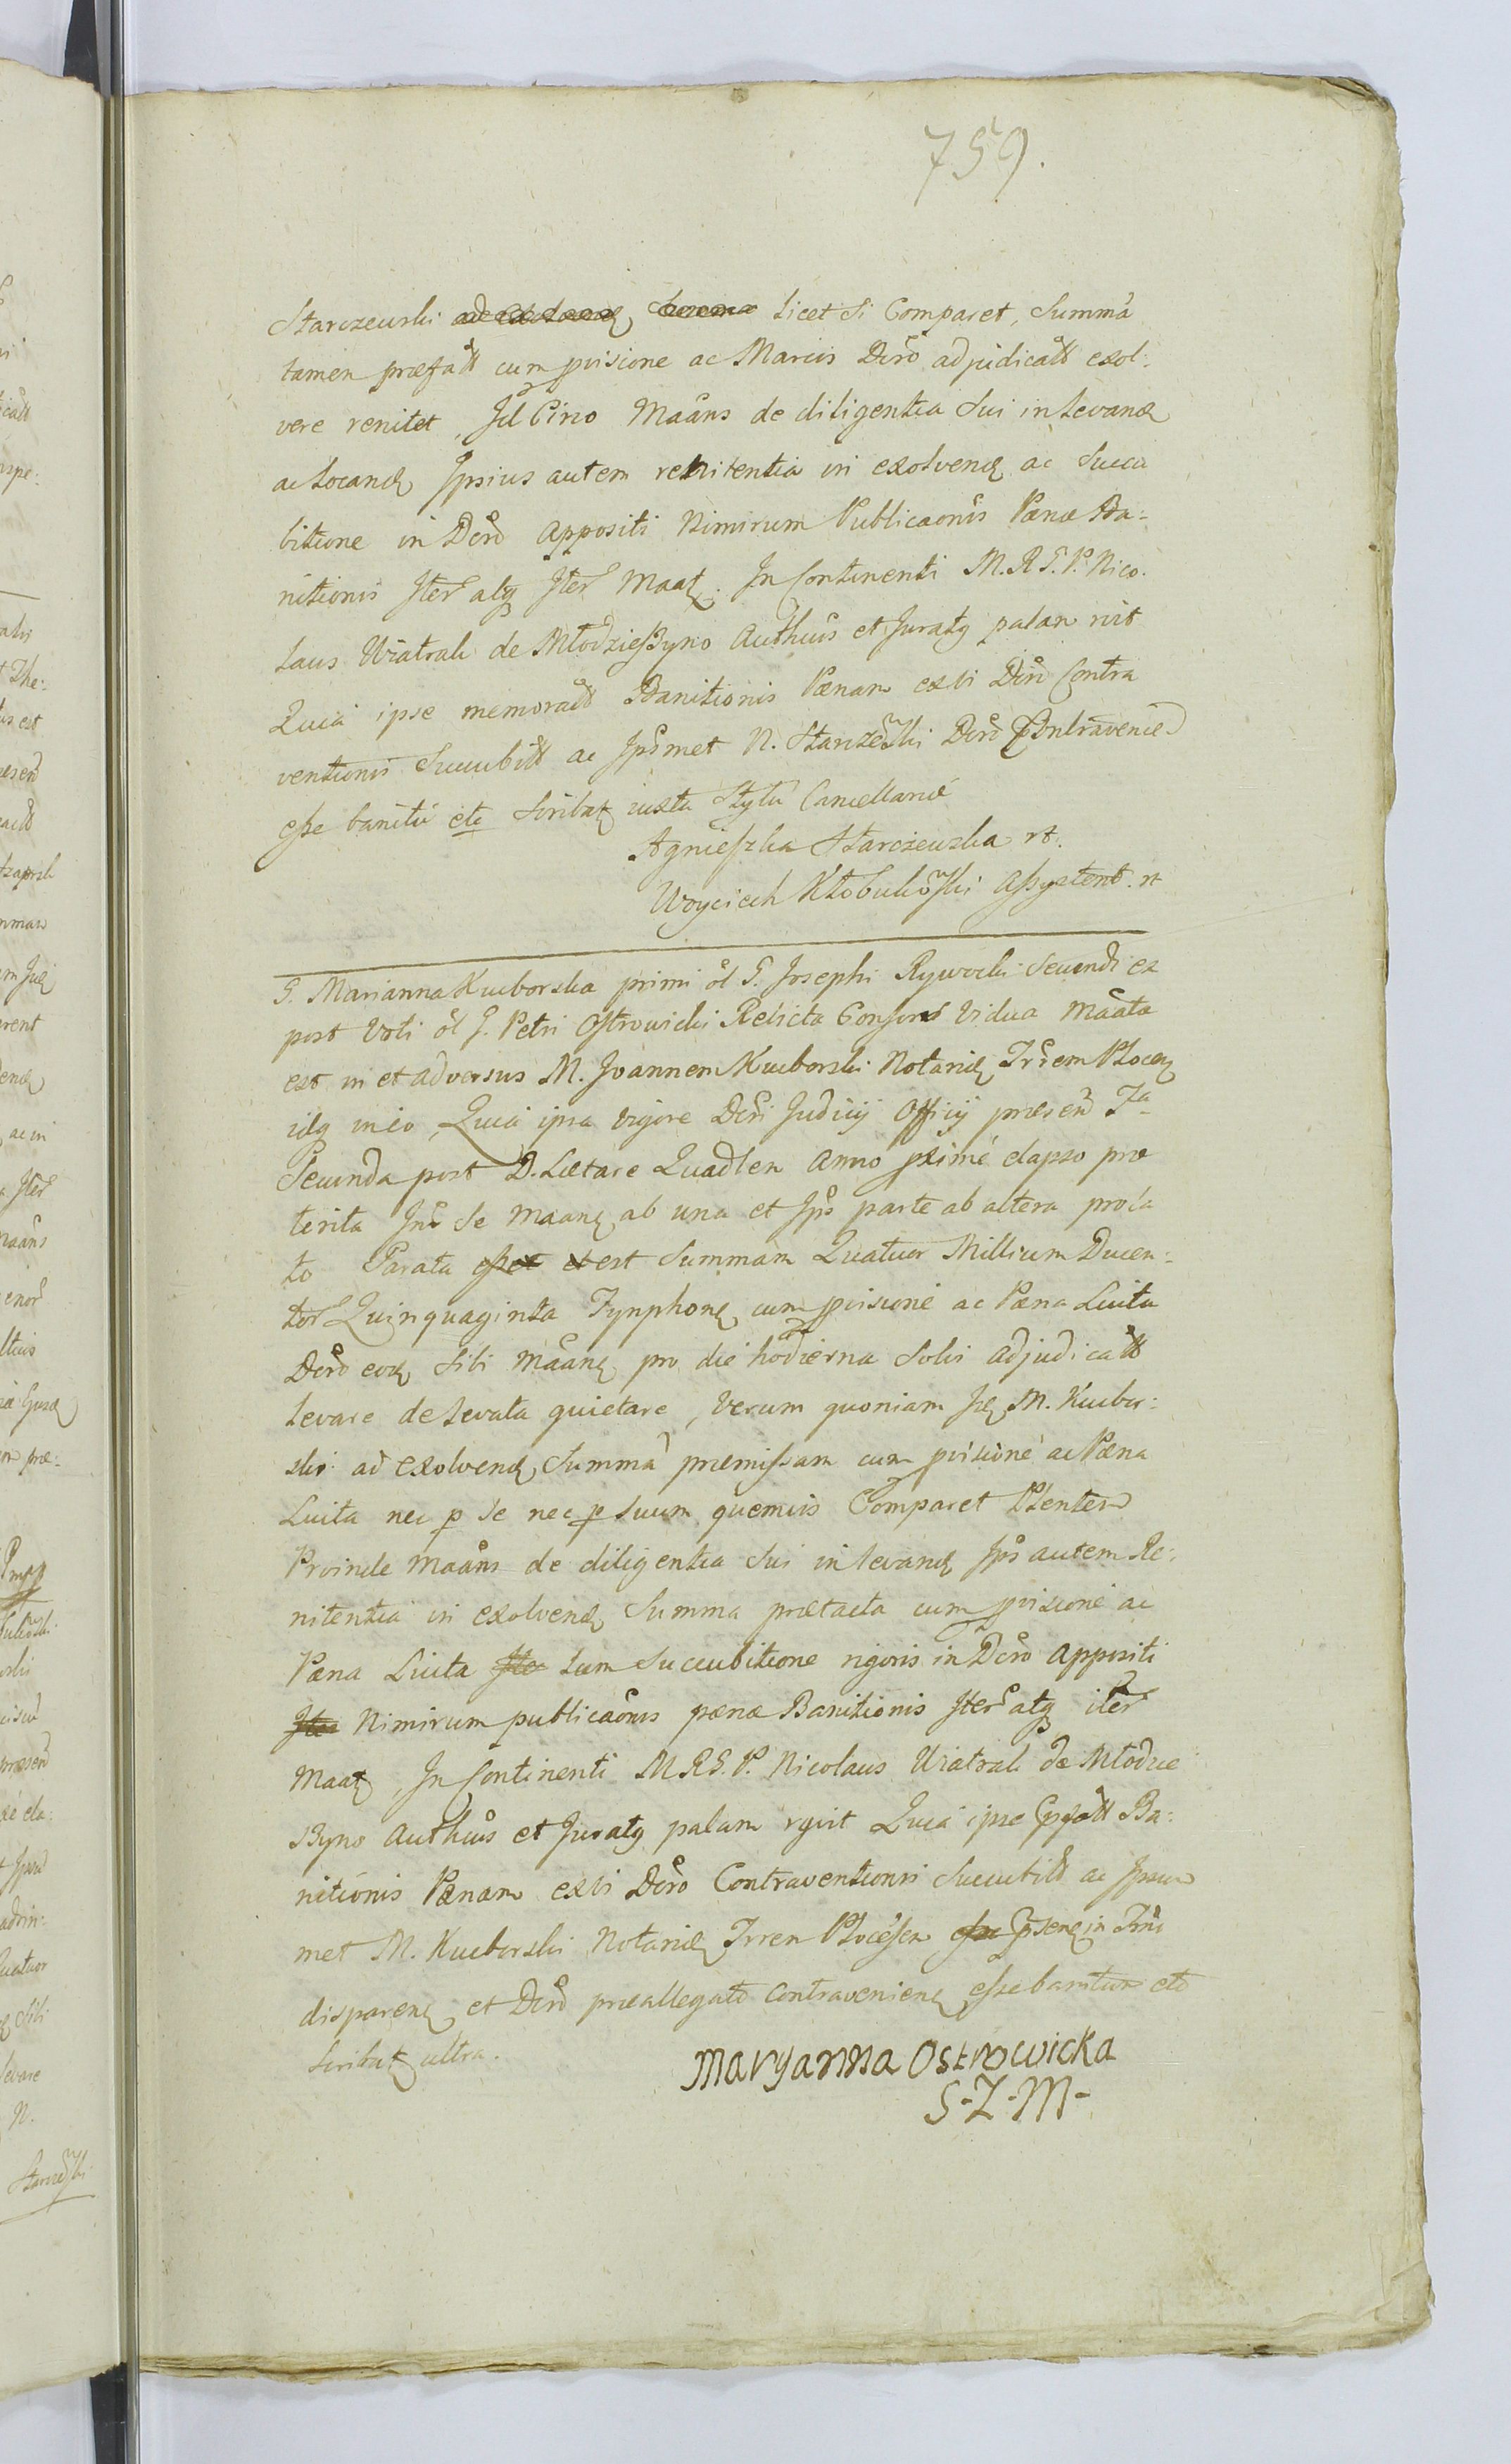 759.
Starczewski ad exolvend Summa licet Si Comparet, Summã
tamen præfatt cum pvisione ac Marcis Dcro adjudicatt exol:
vere renitet, Id Circo Maãns de diligentia Sui in Levand
ac Locand Ipsius autem rehitentia in exolvend ac Succu
bitione in Dcro appositi Nimirum Publicaonis Pænæ Ba:
nitionis Iter atq Iter Maat. In Continenti M.R.G.P. Nico:
laus Wiatrak de Młodzieszyno Authus et Juratq palam rvit
Quia ipse memoratt Banitionis Pænam exvi Dcri Contra
ventionis Succubitt ac Ipsmet N. Starczewski Dcro Contravenien
esse banitũ etc Scribat iuxta Stylũ Cancellariæ
Agnieszka Starczewska rt.
Woyciech Kłobukowski assystent. rt
G. Marianna Kuuborska primi ol G. Josephi Rywocki Secundi ex
post Voti ol G. Petri Ostrowicki Relicta Consors Vidua Maãta
est in et adversus M. Joannem Kuuborski Notariũ Trrem Plocen
idq in eo, Quia ipsa vigore Dcri Judicij Officij præsen Fa
Secunda post D. Lætare Quadlen anno pximè elapso præ
terita Int Se Maanq ab una et Ips parte ab altera prola
to Parata esset et est Summam Quatuor Millium Ducen:
tor Quinquaginta Tynphonũ cum pvisione ac Pæna Luita
Dcro eod Sibi Maanq pro die hodierna Solvi adjudicatt
Levare de Levata quietare, Verum quoniam Id M. Kuubor:
ski ad exolvend Summã præmissam cum pvisione ac Pæna
Luita nec p Se nec p Suum quemvis Comparet Plenten
Proinde Maãns de diligentia Sui in Levand Ips autem Re:
nitentia in exolvend Summa prætacta cum pvisione ac
Pæna Luita Iter tum Succubitione rigoris in Dcro appositi
Iter Nimirum publicaonis pænæ Banitionis Iter atq iter
Maat, In Continenti M R G. P. Nicolaus Wiatrak de Młodzie
szyno Authus et Juratq palam rvit Quia ipse Ppfatt Ba:
nitionis Pænam exvi Dcro Contraventionis Succubitt ac Ipsum
met M. Kuuborski Notariũ Trren Plocesen esse psend in Trno
disparenq et Dcro præallegato Contravenienq esse banitum etc
Scribat ultra.
Maryanna Ostrowicka
S-Z-M-